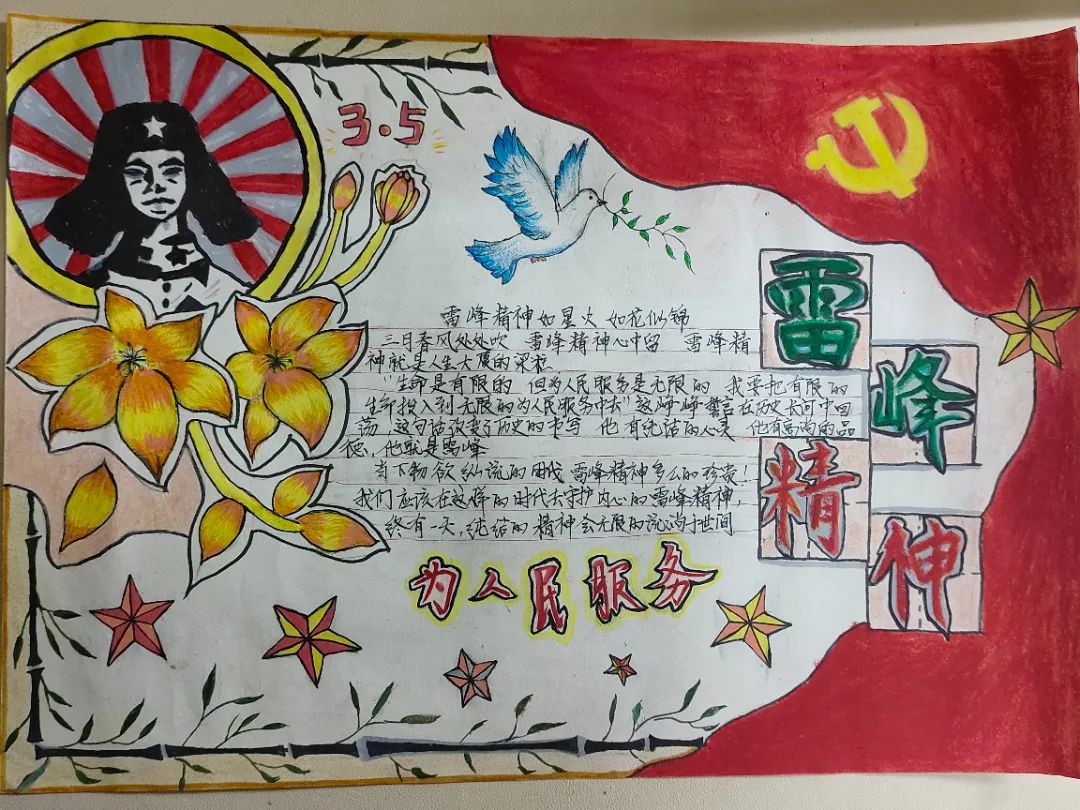 3·5
雷峰精神如星火 如花似锦
三月春风处处吹 雷峰精神心中留 雷峰精
神就是人生大厦的梁柱
"生命是有限的 但为人民服务是无限的 我要把有限的
生命投入到无限的为人民服务中去"这铮铮誓言在历史长河中回
荡 这句话改变了历史的书写 他有纯洁的心灵 他有高尚的品
德，他就是雷峰
当下物欲纵流的时代 雷峰精神多么的珍贵！
我们应该在这样的时代去守护内心的雷峰精神，
终有一天，纯洁的精神会无限的流淌于世间
为人民服务
雷
峰
精
神